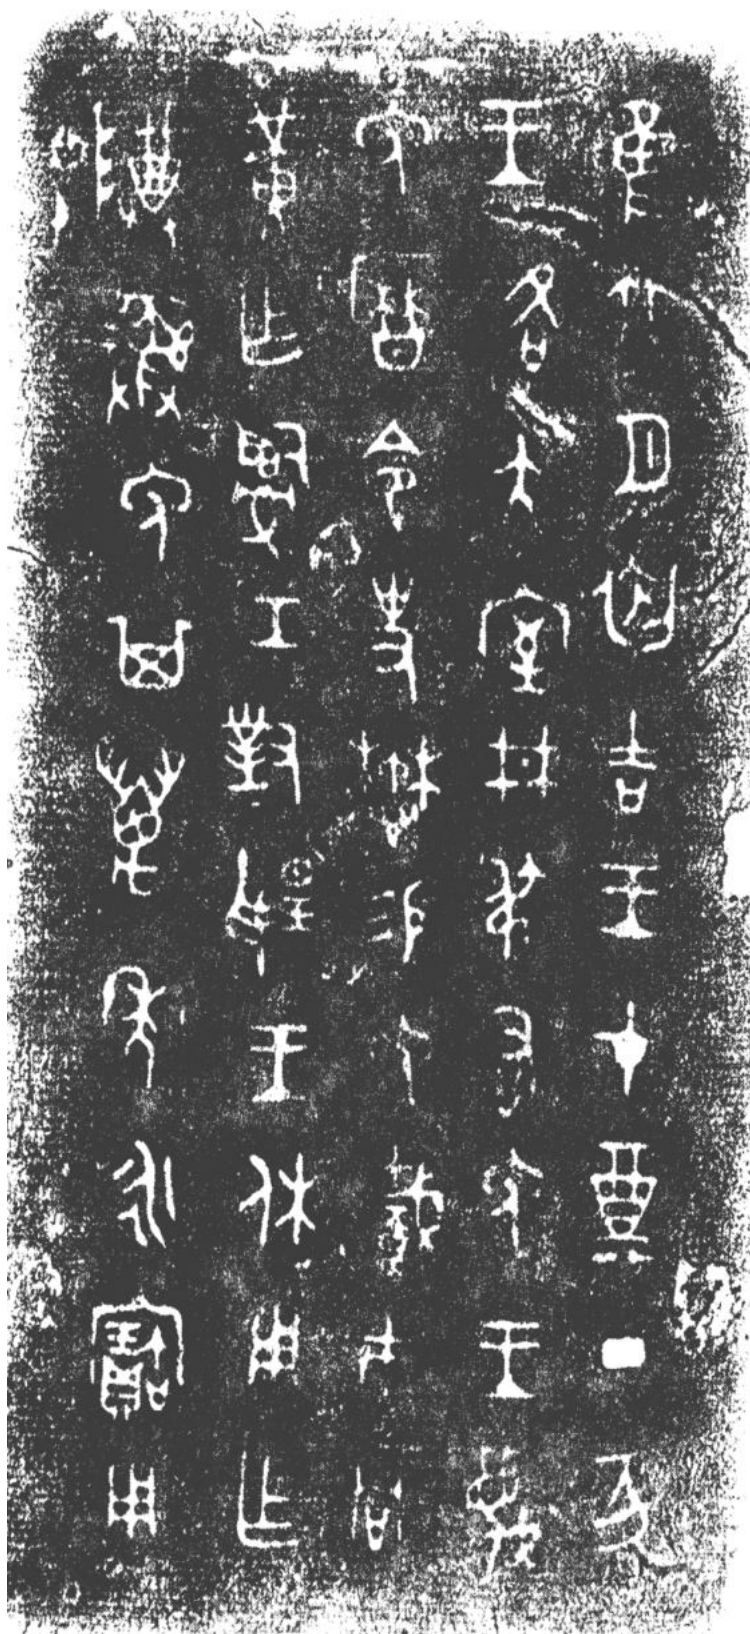 隹六月初吉王才奠丁亥
王各大室井叔右免王蔑
免曆令史懋易免巿冋
黃乍𤔲工對揚王休用乍
尊彝免其萬年永寶用